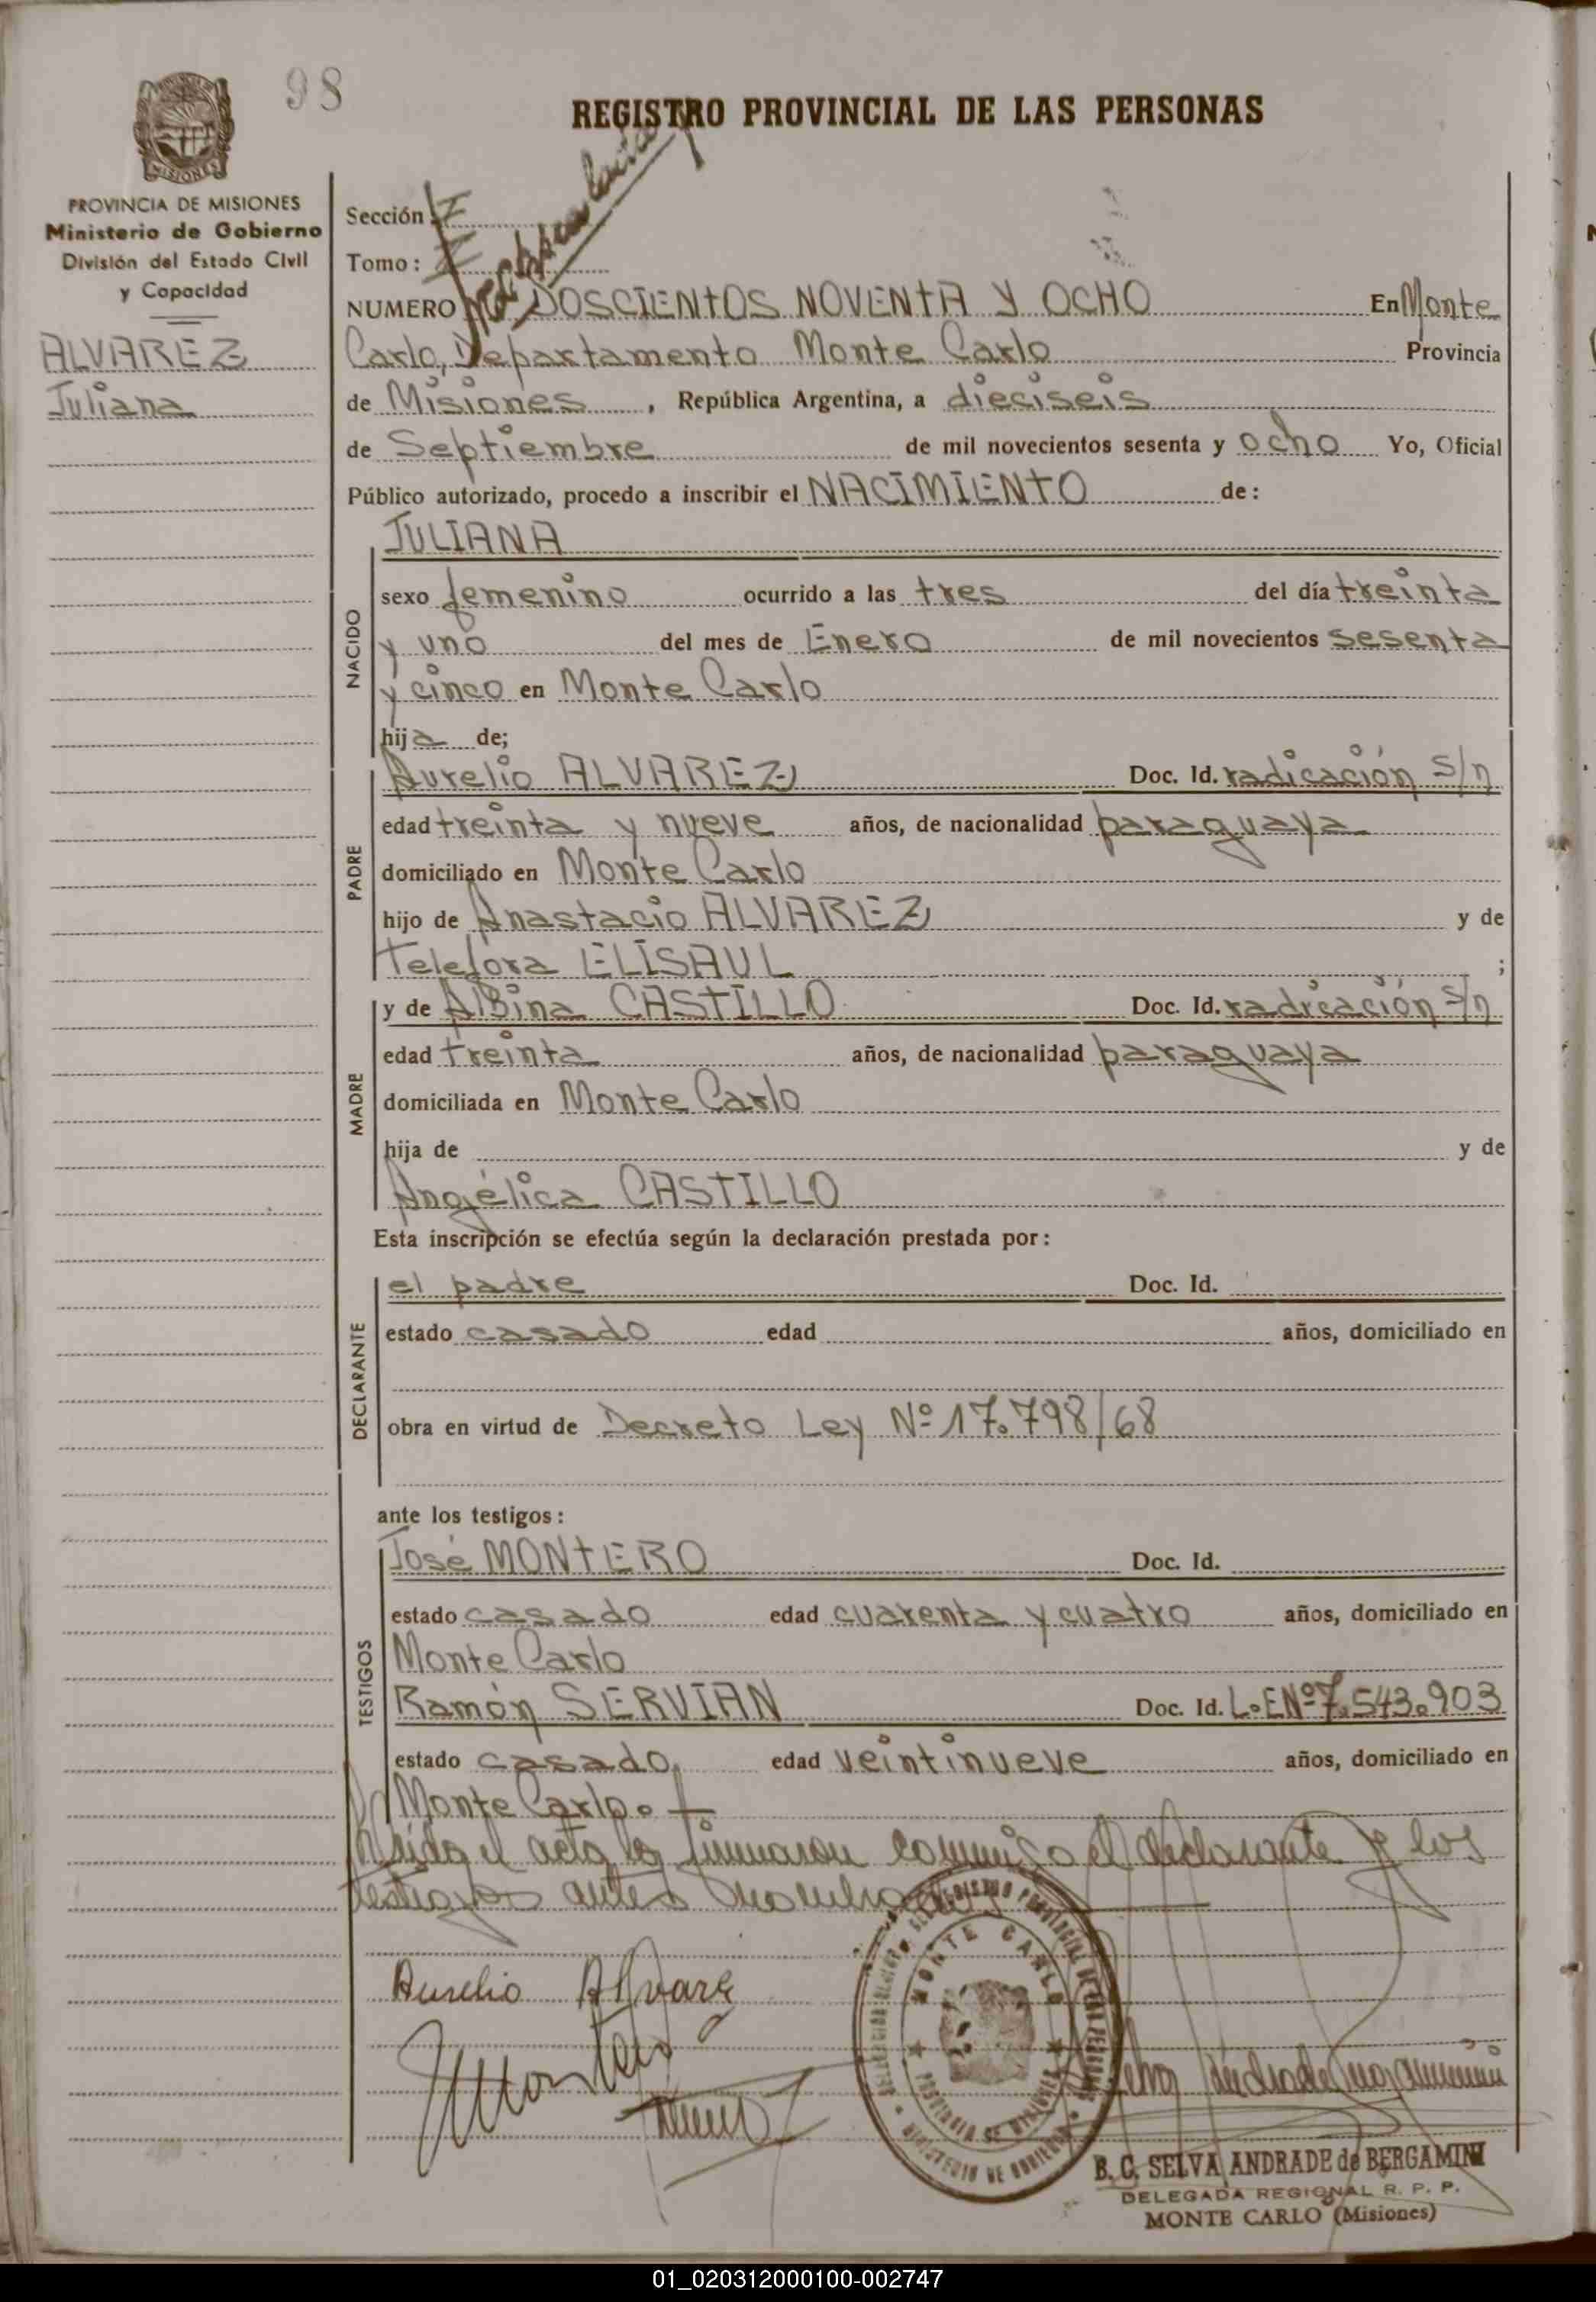 98
REGISTRO PROVINCIAL DE LAS PERSONAS
MISIONES
PROVINCIA DE MISIONES
Ministerio de Gobierno
División del Estado Civil
y Capacidad
ALVAREZ
Juliana
Sección
Tomo:
NUMERO DOSCIENTOS NOVENTA Y OCHO En Monte
Carlo, Departamento Monte Carlo Provincia
de Misiones, República Argentina, a dieciseis
de Septiembre de mil novecientos sesenta y ocho Yo, Oficial
Público autorizado, procedo a inscribir el NACIMIENTO de:
NACIDO
JULIANA
sexo femenino ocurrido a las tres del día treinta
y uno del mes de Enero de mil novecientos sesenta
y cinco en Monte Carlo
hija de;
PADRE
Aurelio ALVAREZ Doc. Id. radicación s/n
edad treinta y nueve años, de nacionalidad paraguaya
domiciliado en Monte Carlo
hijo de Anastacio ALVAREZ y de
Telefora ELISAUL ;
MADRE
y de Albina CASTILLO Doc. Id. radicación s/n
edad treinta años, de nacionalidad paraguaya
domiciliada en Monte Carlo
hija de y de
Angélica CASTILLO
Esta inscripción se efectúa según la declaración prestada por:
DECLARANTE
el padre Doc. Id.
estado casado edad años, domiciliado en
obra en virtud de Decreto Ley Nº 17.798/68
ante los testigos:
TESTIGOS
José MONTERO Doc. Id.
estado casado edad cuarenta y cuatro años, domiciliado en
Monte Carlo
Ramón SERVIAN Doc. Id. L.E Nº 7.543.903
estado casado, edad veintinueve años, domiciliado en
Monte Carlo.
Leida el acta la firmaron conmigo el declarante y los
testigos antes nombrados
Aurelio Alvarez
JMontero
MONTE CARLO
PROVINCIA DE MISIONES
MINISTERIO DE GOBIERNO
B. C. SELVA ANDRADE de BERGAMINI
DELEGADA REGIONAL R. P. P.
MONTE CARLO (Misiones)
01_020312000100-002747